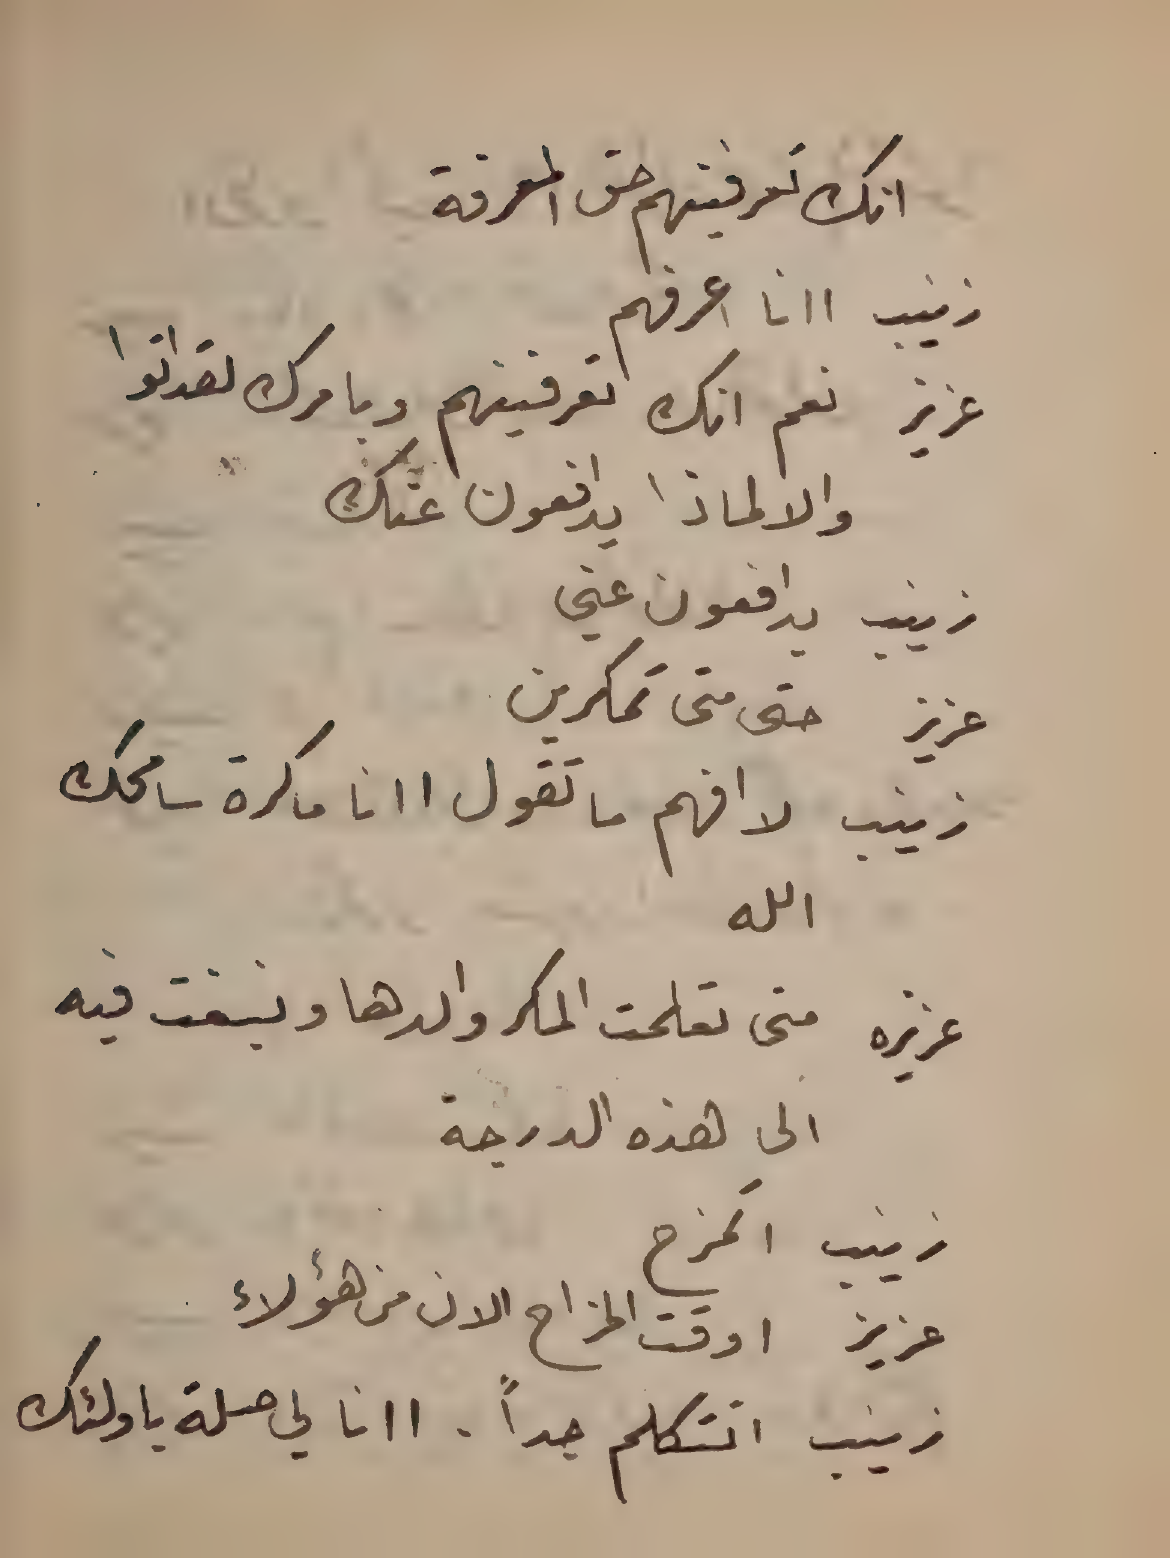 انك تعرفينهم حق المعرفة
زينب اانا اعرفهم
عزيز نعم انك تعرفينهم وبامرك لقد اتوا
والا لماذا يدافعون عنك
زينب يدافعون عني
عزيز حتى متى تمكرين
زينب لا افهم ما تقول اانا ماكرة سامحك
الله
عزيزه متى تعلمت المكر والدها ونبغت فيه
الى هذه الدرجة
زينب اتمزح
عزيز اوقت المزاح الان من هؤلاء
زينب اتتكلم جداً . اانا لي صلة باولئك